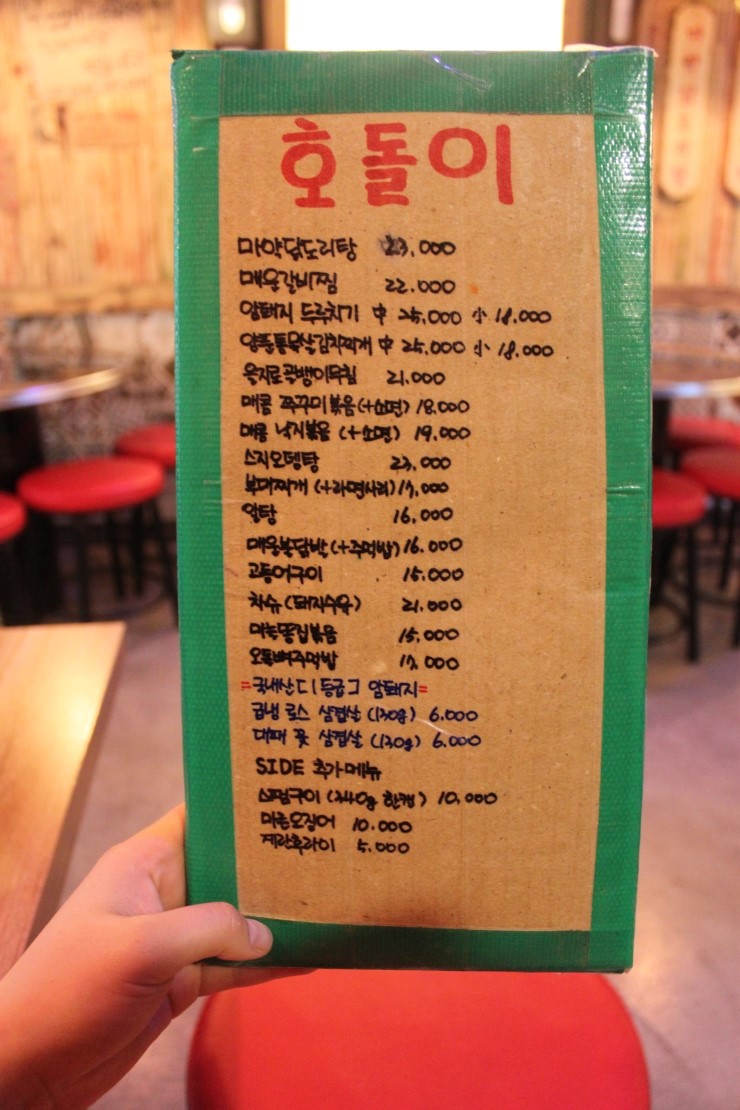 호돌이
마약닭도리탕 23,000
매운갈비찜 22.000
암퇘지 두루치기 中 25,000 小 18.000
양푼통목살김치찌개 中 25.000 小 18.000
을지로골뱅이무침 21.000
매콤 쭈꾸미볶음(+소면) 18.000
매콤 낙지볶음 (+소면) 19,000
스지오뎅탕 23,000
부대찌개 (+라면사리) 17,000
알탕 16,000
매운불닭발(+주먹밥) 16.000
고등어구이 15.000
차슈 (돼지수육) 21.000
마늘똥집볶음 15,000
오돌뼈주먹밥 17,000
=국내산 [1등급] 암퇘지=
급냉 로스 삼겹살 (130g) 6.000
대패 꽃 삼겹살 (130g) 6.000
SIDE 추가메뉴
스팸구이 (340g 한캔) 10,000
마른오징어 10.000
계란후라이 5.000